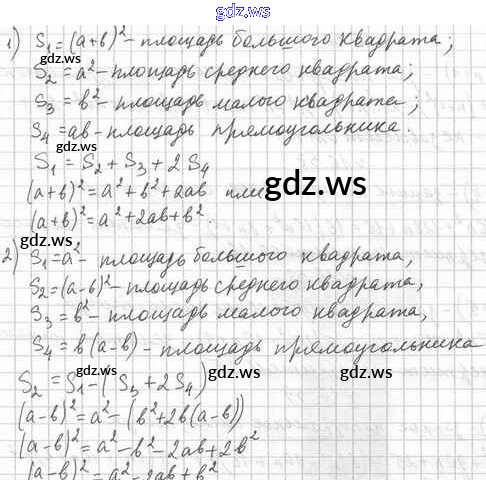 gdz.ws
1) S₁ = (a+b)² - площадь большого квадрата;
S₂ = a² - площадь среднего квадрата;
S₃ = b² - площадь малого квадрата;
S₄ = ab - площадь прямоугольника.
S₁ = S₂ + S₃ + 2S₄
(a+b)² = a² + b² + 2ab
gdz.ws
(a+b)² = a² + 2ab + b².
gdz.ws
2) S₁ = a² - площадь большого квадрата,
S₂ = (a-b)² - площадь среднего квадрата,
S₃ = b² - площадь малого квадрата,
S₄ = b(a-b) - площадь прямоугольника
S₂ = S₁ - (S₃ + 2S₄)
gdz.ws gdz.ws
(a-b)² = a² - (b² + 2b(a-b))
(a-b)² = a² - b² - 2ab + 2b²
(a-b)² = a² - 2ab + b²
gdz.ws